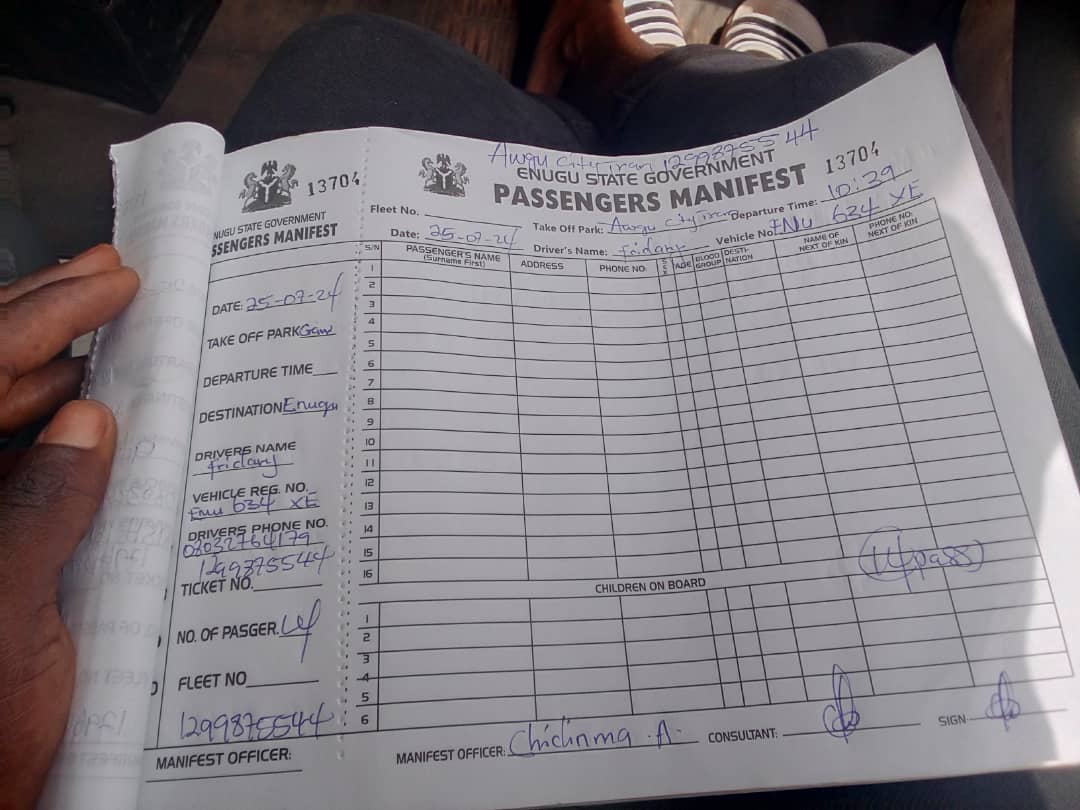 13704
NUGU STATE GOVERNMENT
SSENGERS MANIFEST
DATE: 25-07-24
TAKE OFF PARK
DEPARTURE TIME
DESTINATION Enugu
DRIVERS NAME
friday
VEHICLE REG. NO.
Enu 634 XE
DRIVERS PHONE NO.
08032764179
1299875544
TICKET NO.
NO. OF PASGER.
FLEET NO
1299875544
MANIFEST OFFICER:
Awgu City Tran 1299875544
ENUGU STATE GOVERNMENT 13704
PASSENGERS MANIFEST
Fleet No. Take Off Park: Awgu city Tran Departure Time: 10:39
Date: 25-07-24 Driver's Name: friday Vehicle No. ENU 634 XE
S/N PASSENGER'S NAME (Surname First) ADDRESS PHONE NO. AGE BLOOD GROUP DESTI-NATION NAME OF NEXT OF KIN PHONE NO. NEXT OF KIN
1
2
3
4
5
6
7
8
9
10
11
12
13
14
15
16
pass
CHILDREN ON BOARD
1
2
3
4
5
6
MANIFEST OFFICER: Chidinma A. CONSULTANT: SIGN